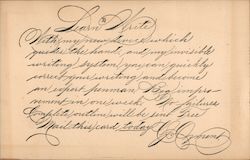 Learn to Write
With my new device, which
guides the hand, and my invisible
writing system, you can quickly
correct your writing and become
an expert penman. Big impro-
vement in one week. No failures.
Complete outline will be sent Free.
Mail this card today.